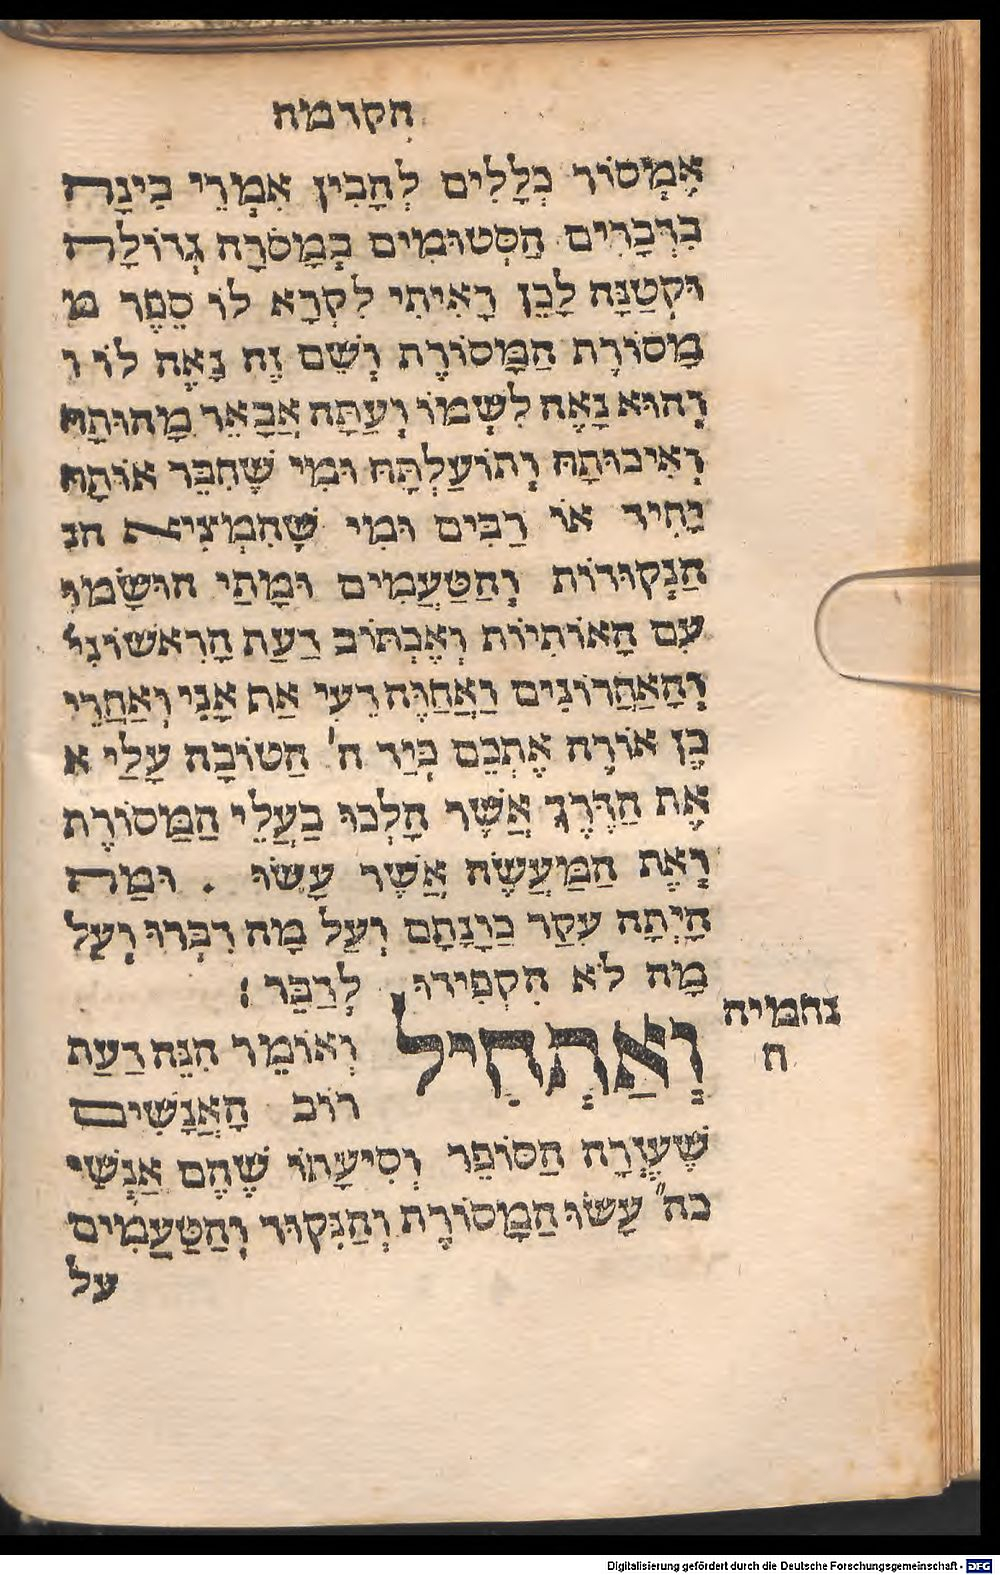 הקדמה
אֶמְסוֹר כְּלָלִים לְהָבִין אִמְרֵי בִינָה
בִּדְבָרִים הַסְּטוּמִים בְּמָסֹרָה גְדוֹלָה
וּקְטַנָּה לָכֵן רָאִיתִי לִקְרָא לוֹ סֵפֶר מ
מָסוֹרֶת הַמָּסוֹרֶת וְשֵׁם זֶה נָאֶה לוֹ ו
וְהוּא נָאֶה לִשְׁמוֹ וְעַתָּה אֲבָאֵר מָהוּתָהּ
וְאֵיכוּתָהּ וְתוֹעַלְתָּהּ וּמִי שֶׁחִבֵּר אוֹתָהּ
יָחִיד אוֹ רַבִּים וּמִי שֶׁהִמְצִיא הנ
הַנְּקוּדוֹת וְהַטְּעָמִים וּמָתַי הוּשָׂמוּ
עִם הָאוֹתִיּוֹת וְאֶכְתּוֹב דַּעַת הָרִאשׁוֹנִי
וְהָאַחֲרוֹנִים וַאֲחַוֶּה דֵעִי אַף אָנִי וְאַחֲרֵי
כֵן אוֹרֶה אֶתְכֶם בְּיַד ה' הַטּוֹבָה עָלַי א
אֶת הַדֶּרֶךְ אֲשֶׁר הָלְכוּ בַּעֲלֵי הַמָּסוֹרֶת
וְאֶת הַמַּעֲשֶׂה אֲשֶׁר עָשׂוּ . וּמַה
הָיְתָה עִקַּר כַּוָּנָתָם וְעַל מָה דִּבְּרוּ וְעַל
מָה לֹא הִקְפִּידוּ לְדַבֵּר :
נחמיה
ח
וְאַתְחִיל וְאוֹמֵר הִנֵּה דַעַת
רוֹב הָאֲנָשִׁים
שֶׁעֶזְרָה הַסּוֹפֵר וְסִיעָתוֹ שֶׁהֶם אַנְשֵׁי
כה" עָשׂוּ הַמָּסוֹרֶת וְהַנִּקּוּד וְהַטְּעָמִים
על
Digitalisierung gefördert durch die Deutsche Forschungsgemeinschaft - DFG